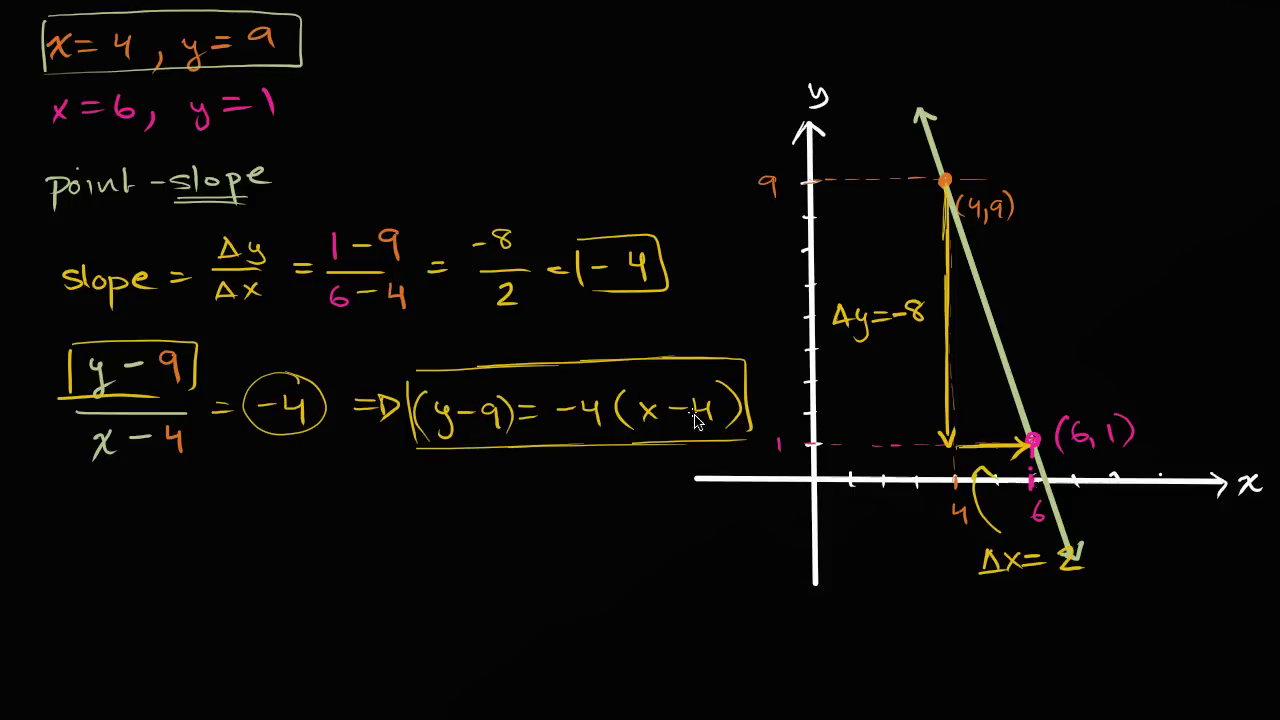 x = 4 , y = 9
x = 6, y = 1
point - slope
slope = Δy/Δx = (1 - 9)/(6 - 4) = -8/2 = -4
(y - 9)/(x - 4) = -4 ⇒ (y - 9) = -4 (x - 4)
y
9
(4,9)
Δy = -8
1
(6, 1)
x
4
6
Δx = 2